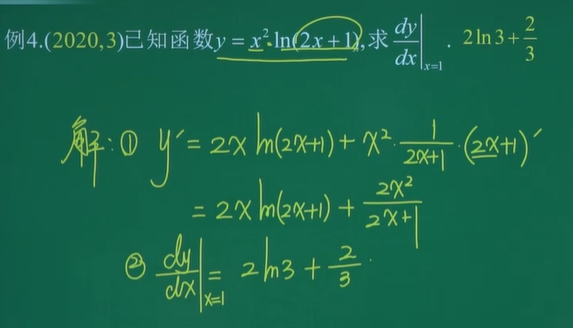 例4.(2020,3)已知函数y = x²·ln(2x+1),求 dy/dx|ₓ₌₁. 2ln3+2/3
解:① y′ = 2x ln(2x+1) + x²·1/(2x+1)·(2x+1)′
= 2x ln(2x+1) + 2x²/(2x+1)
② dy/dx|ₓ₌₁ = 2ln3 + 2/3.